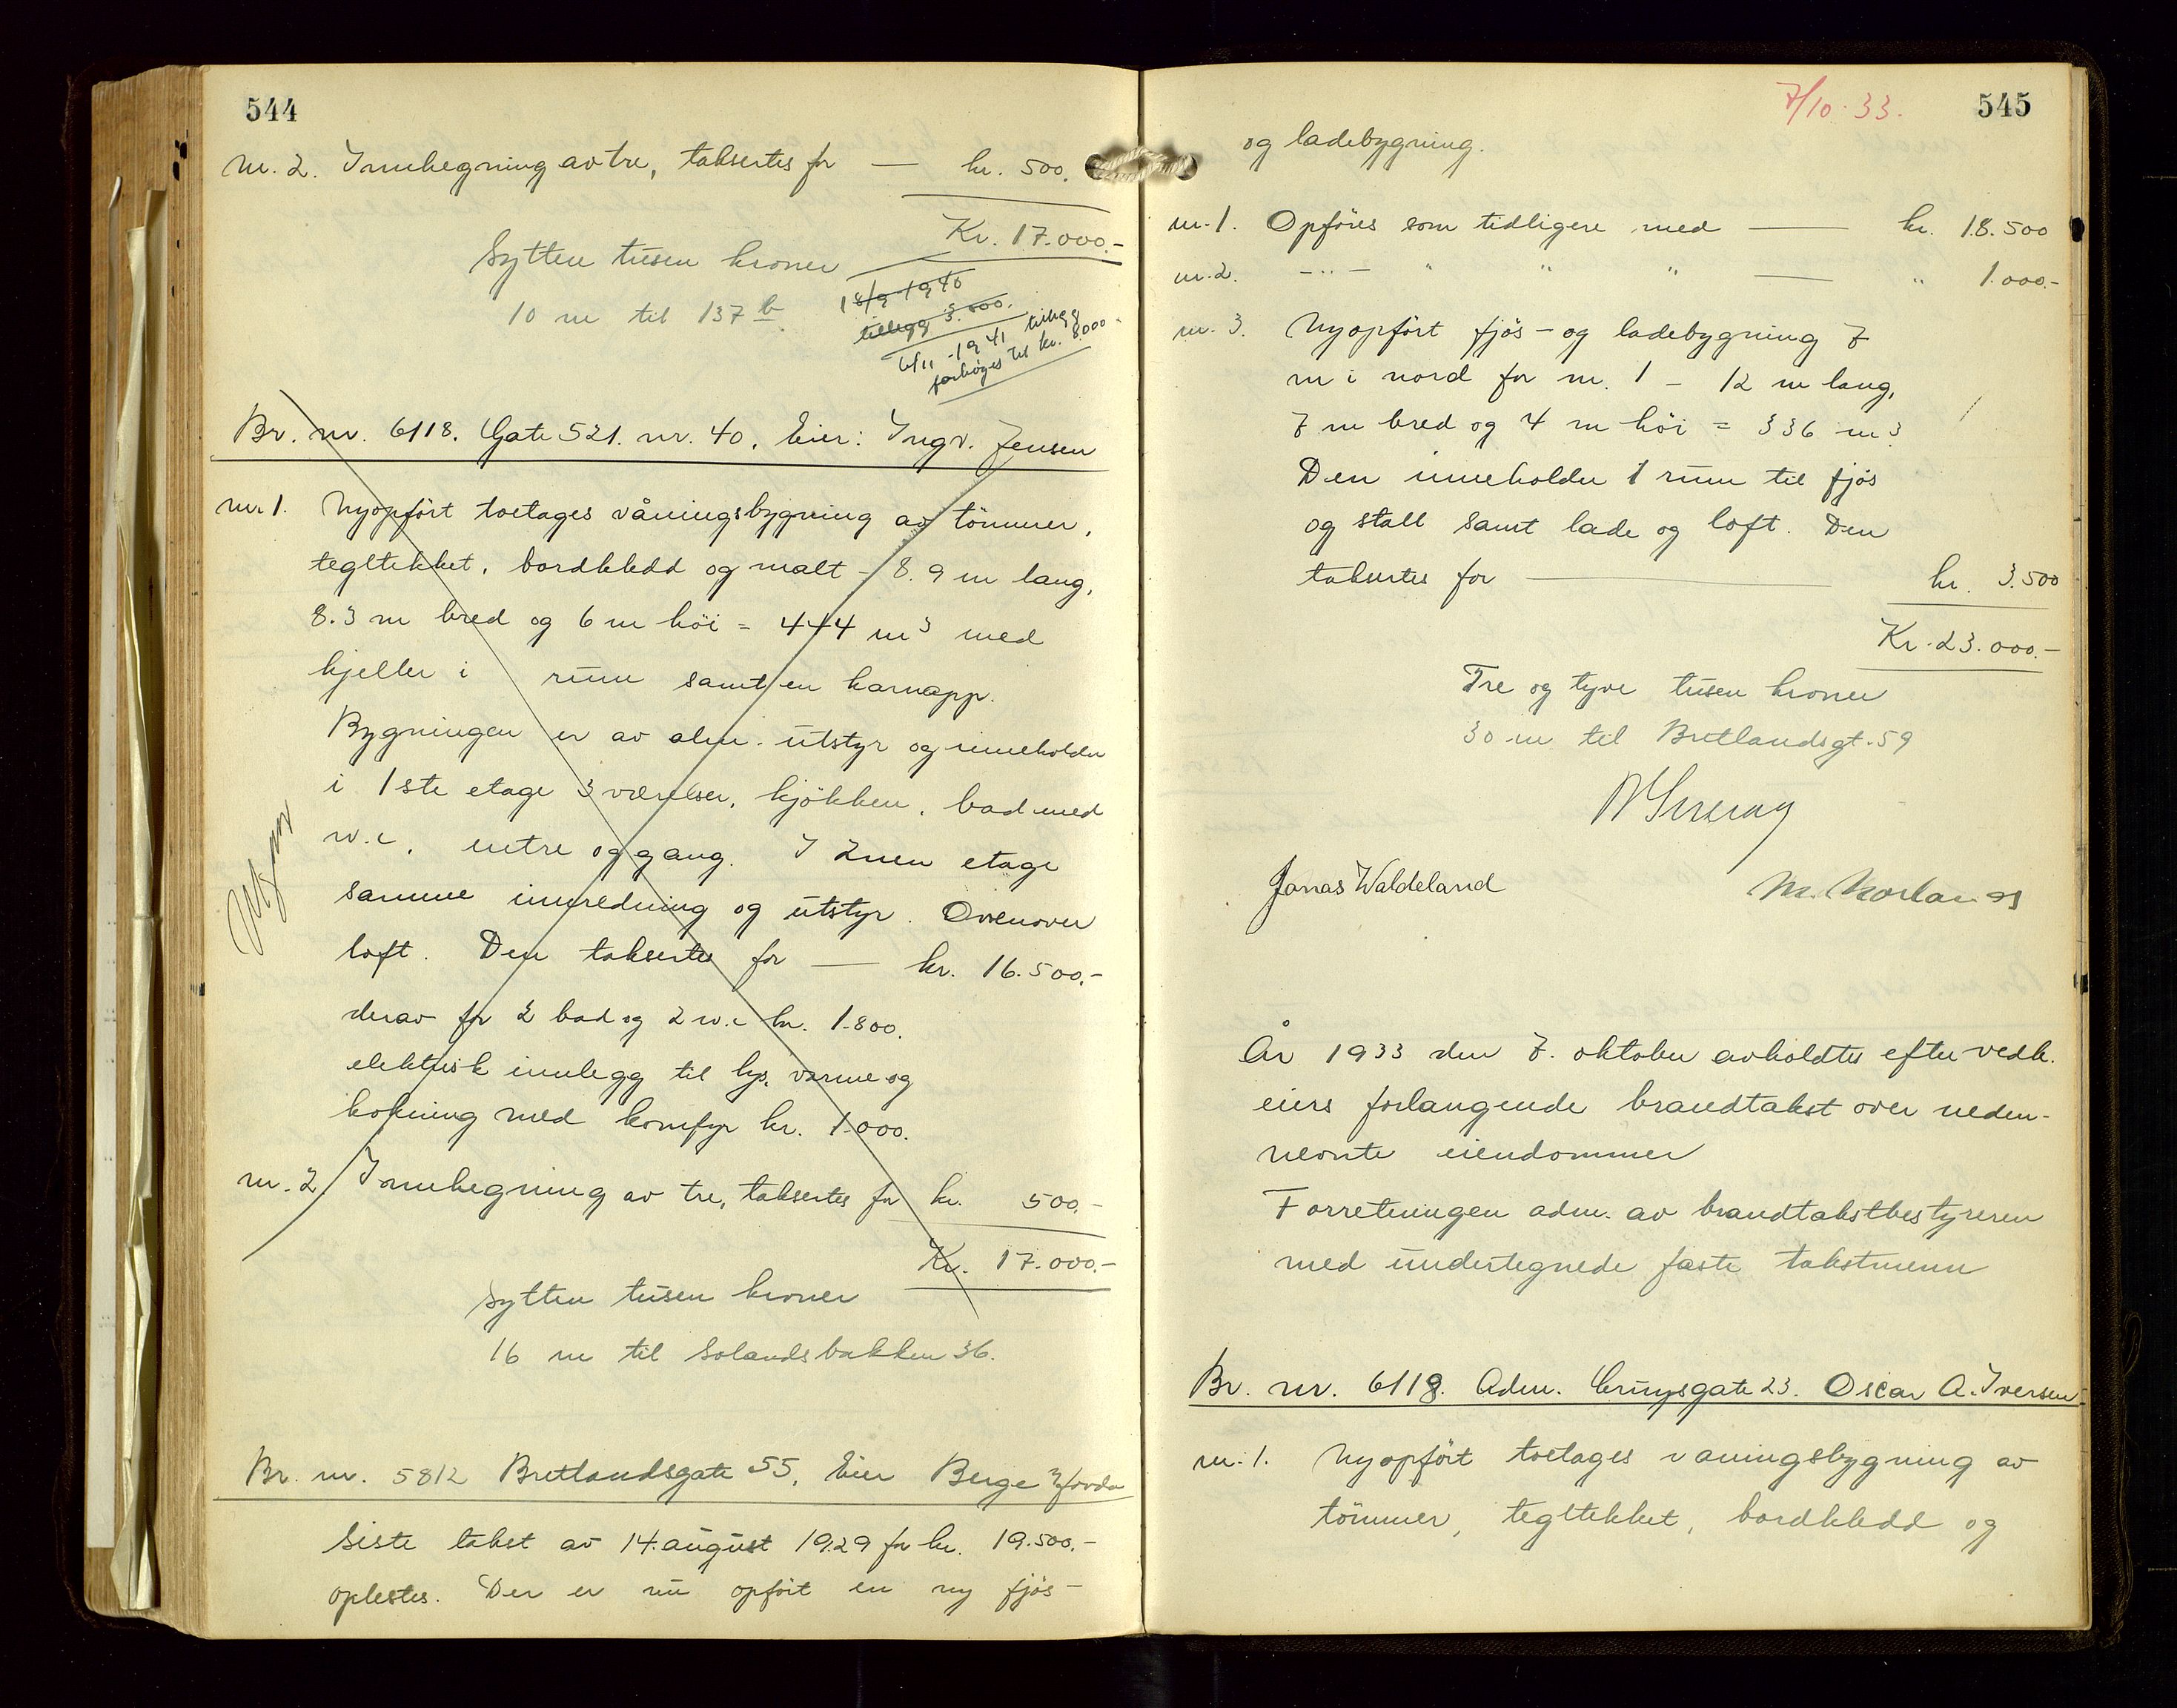 544
nr. 2. Innhegning av tre, taksertes for — kr. 500.
Kr. 17.000.-
Sytten tusen kroner
10 m til 137 b.
18/9-1940
tillegg 3.500.
6/11-1941 tillegg
forhøges til kr. 8000.-
Br. nr. 6118. Gate 521. nr. 40. Eier: Ingv. Jensen
nr. 1. Nyopført toetages våningsbygning av tömmer,
tegltekket, bordkledd og malt - 8.9 m lang,
8.3 m bred og 6 m höi = 444 m³ med
kjeller i rum samt en karnapp.
Bygningen er av alm. utstyr og inneholder
i 1ste etage 3 værelser, kjökken, bad med
w.c. entre og gang. I 2nen etage
samme innredning og utstyr. Ovenover
loft. Den taksertes for — kr. 16.500.-
derav for 2 bad og 2 w.c kr. 1.800.
elektrisk innlegg til lys, varme og
kokning med komfyr kr. 1.000.
nr. 2 Innhegning av tre, taksertes for kr. 500.-
Kr. 17.000.-
Sytten tusen kroner
16 m til Solandsbakken 36.
Utgaar
Br. nr. 5812 Bretlandsgate 55, Eier Berge
Siste takst av 14. august 1929 for kr. 19.500.-
oplestes. Der er nu opført en ny fjös-
7/10-33.
545
og ladebygning.
nr. 1. Opföres som tidligere med — kr. 18.500
nr. 2. -"- " " " — " 1.000.-
nr. 3. Nyopfört fjös- og ladebygning 7
m i nord for nr. 1 - 12 m lang,
7 m bred og 4 m höi = 336 m³
Den inneholder 1 rum til fjös
og stall samt lade og loft. Den
taksertes for — kr. 3.500
Kr. 23.000.-
Tre og tyve tusen kroner
30 m til Bretlandsgt. 59
Jonas Waldeland
År 1933 den 7. oktober avholdtes efter vedk.
eiers forlangende brandtakst over neden-
nevnte eiendommer
Forretningen adm. av brandtakstbestyreren
med undertegnede faste takstmenn
Br. nr. 6118. Adm. Cruysgate 23. Oscar A. Iversen.
nr. 1. Nyopfört toetages våningsbygning av
tömmer, tegltekket, bordkledd og